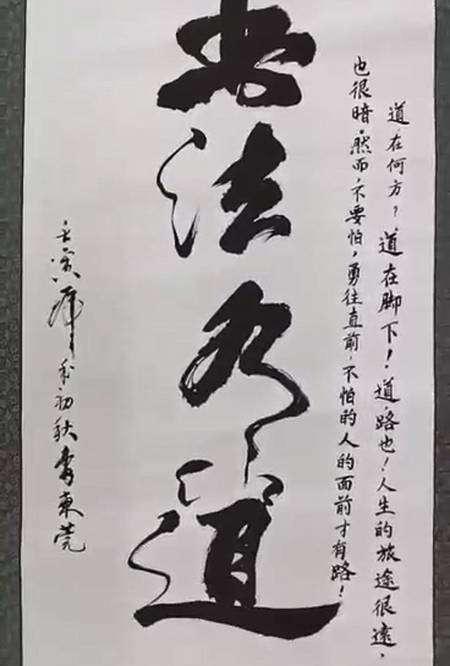 道,在何方?道在脚下!道,路也!人生的旅途很遠,
也很暗,然而,不要怕,勇往直前,不怕的人的面前才有路!
书法有道
壬寅年初秋書東莞